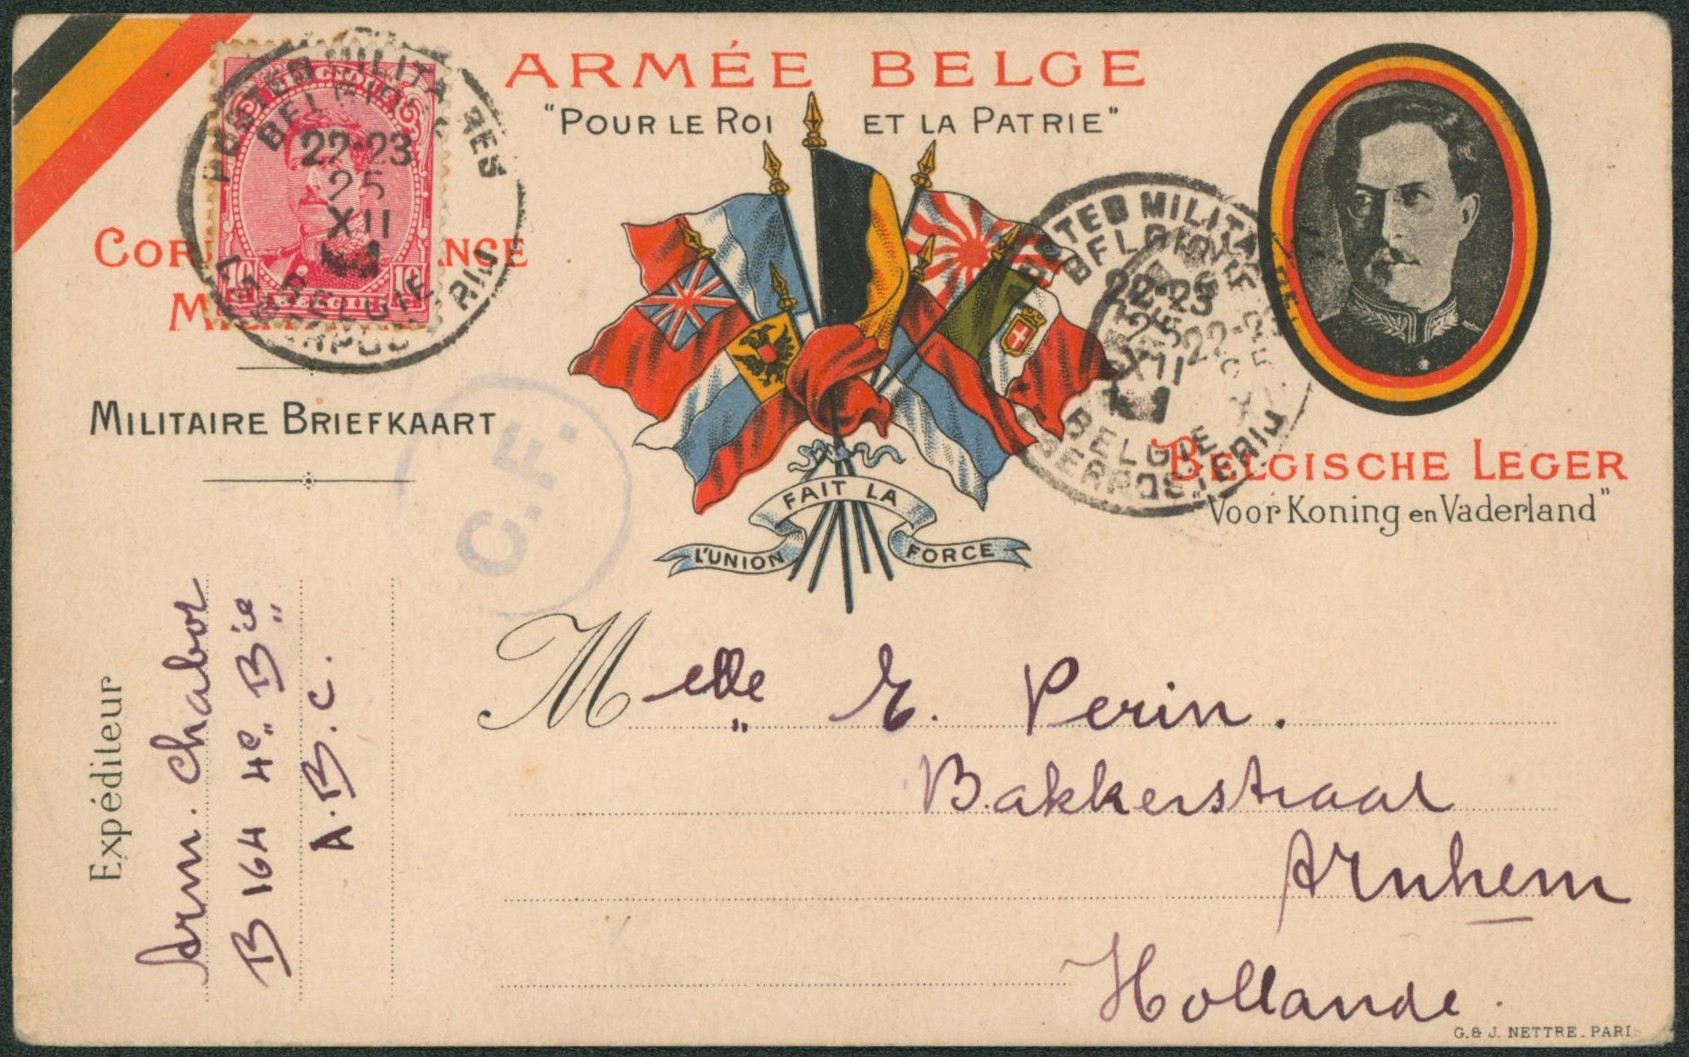 ARMÉE BELGE
"POUR LE ROI ET LA PATRIE"
POSTES MILITAIRES
BELGIQUE
22-23
25
XII
BELGIE
10 10
MILITAIRE BRIEFKAART
C.F.
L'UNION FAIT LA FORCE
POSTES MILITAIRES
BELGIQUE
22-23
25
XII
BELGIE
LEGERPOSTERIJ
22-23
BELGISCHE LEGER
"Voor Koning en Vaderland"
Expéditeur
Arm. Chabot
B 164 4e Bie
A.B.C.
Melle E. Perin.
Bakkerstraat
Arnhem
Hollande.
G. & J. NETTRE. PARIS